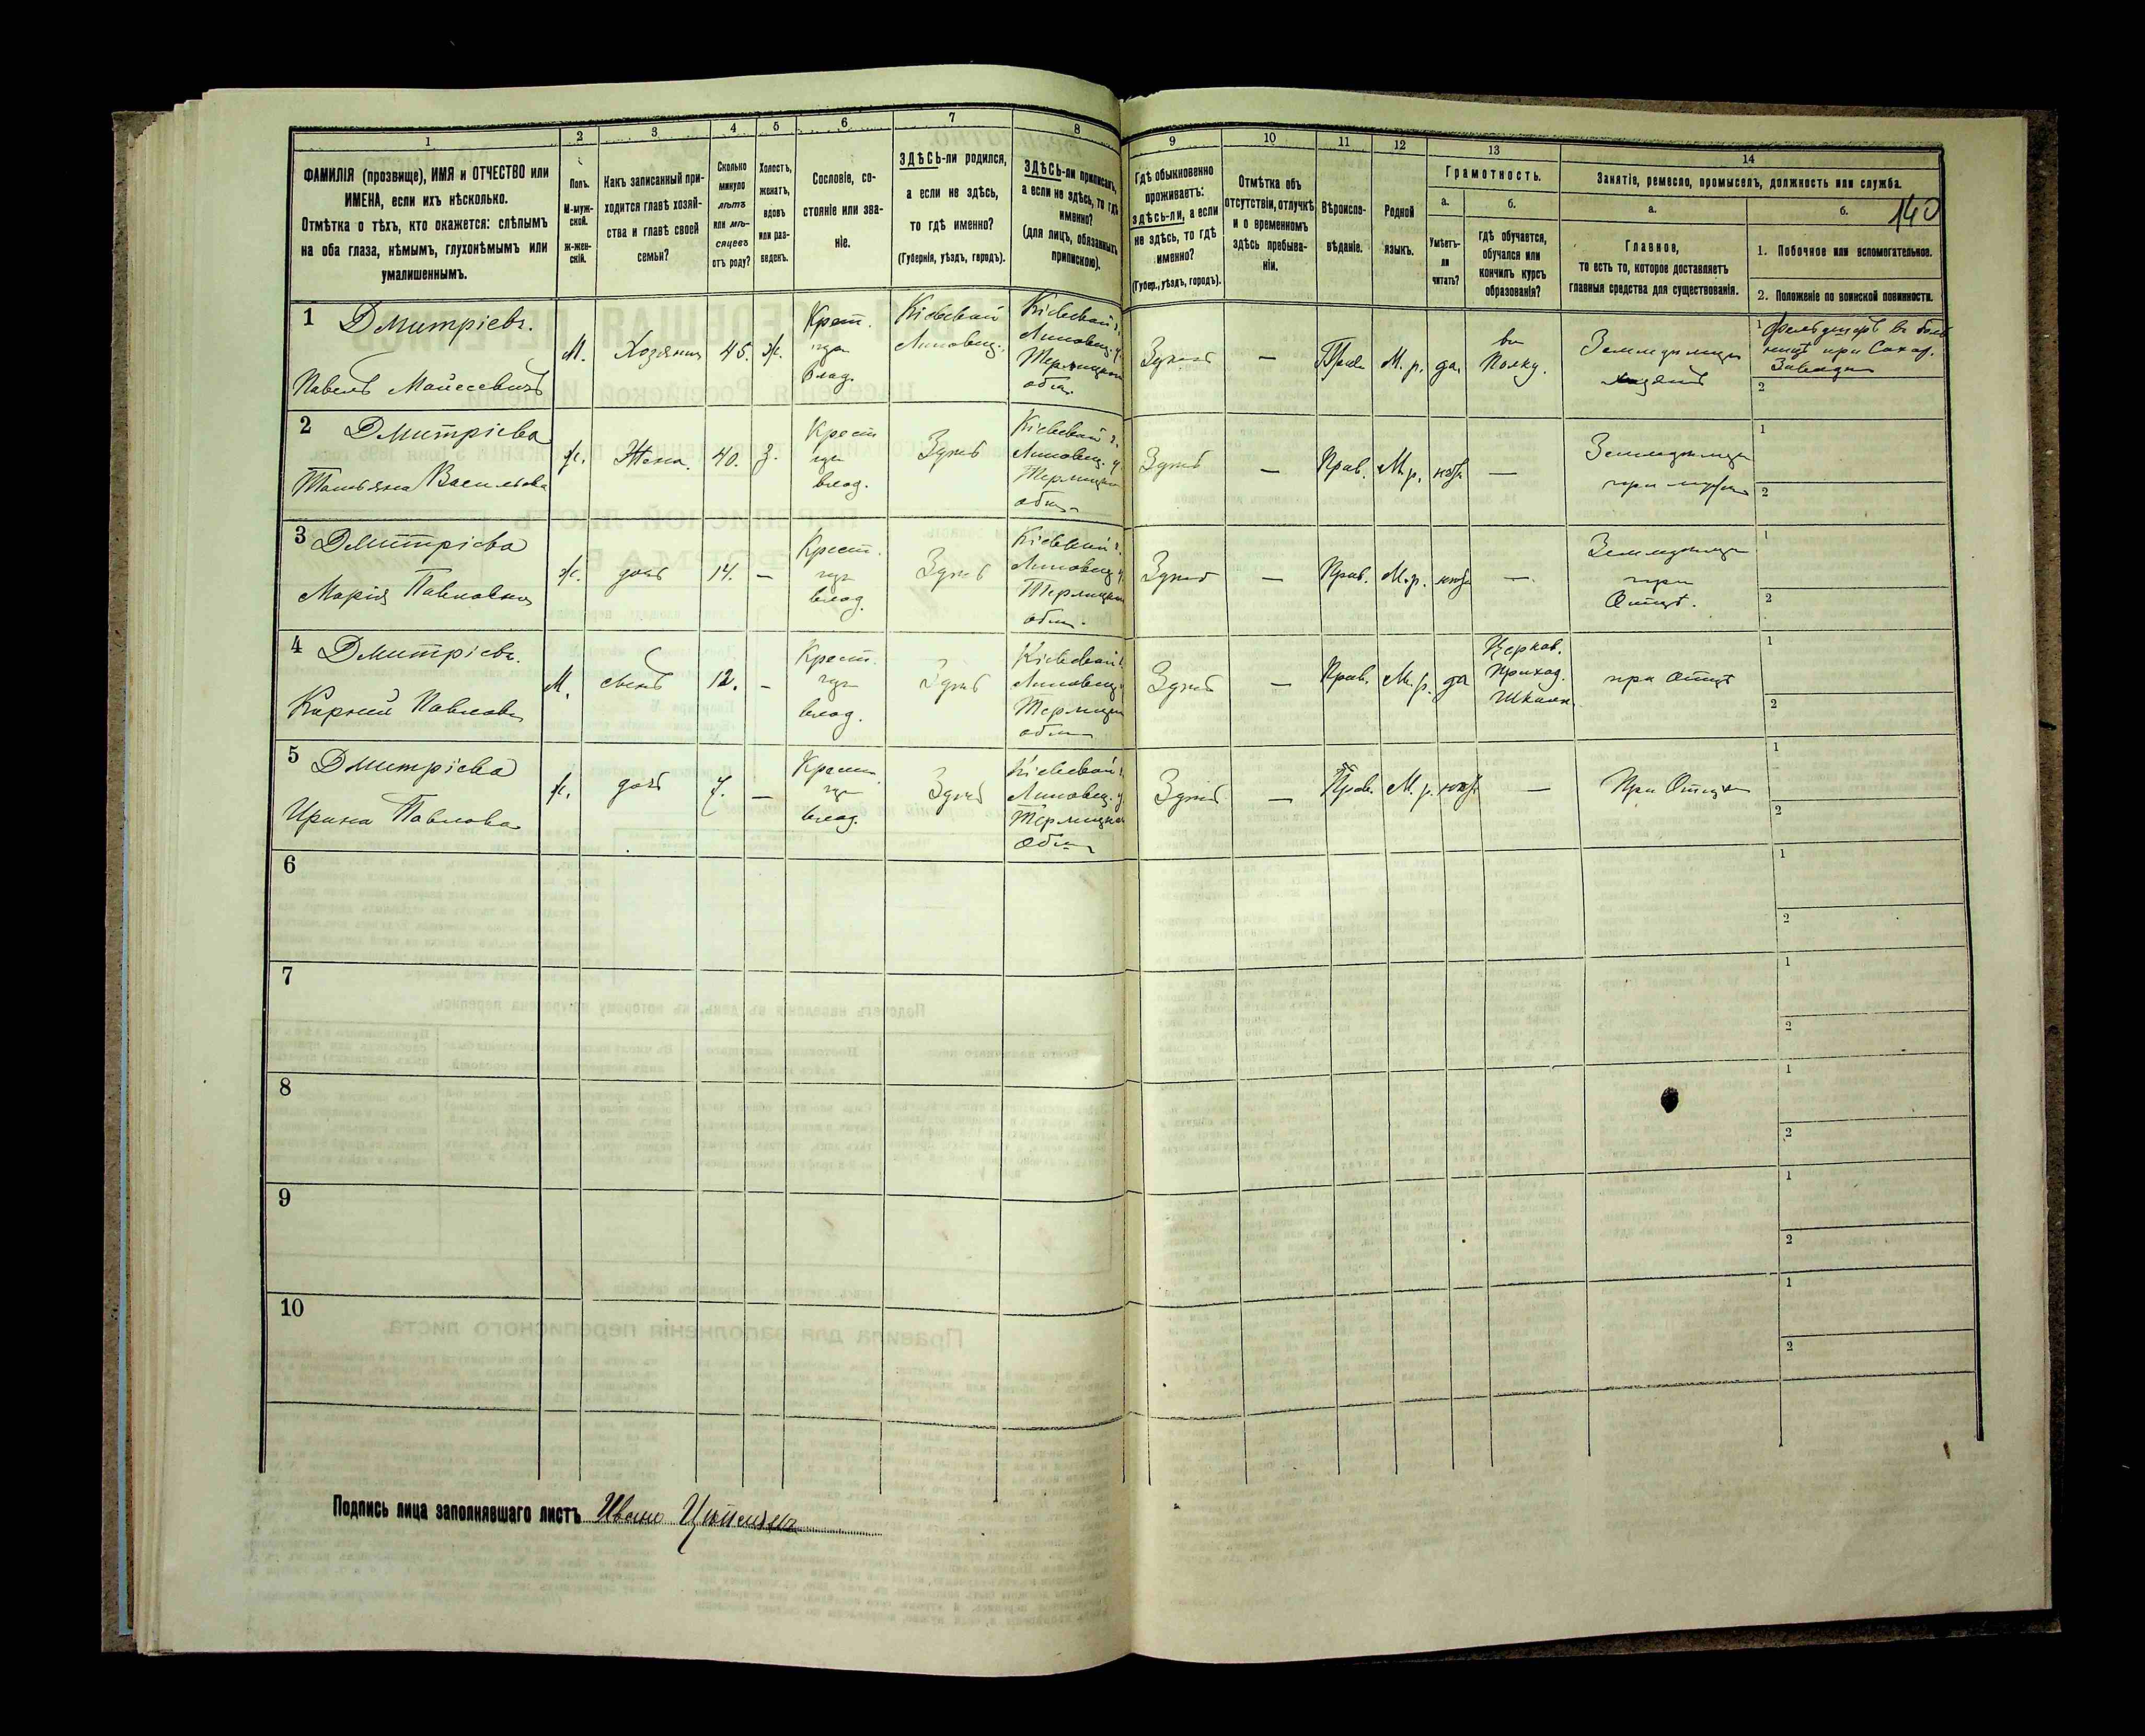 1
ФАМИЛІЯ (прозвище), ИМЯ и ОТЧЕСТВО или
ИМЕНА, если ихъ нѣсколько.
Отмѣтка о тѣхъ, кто окажется: слѣпымъ
на оба глаза, нѣмымъ, глухонѣмымъ или
умалишеннымъ.
2
Полъ.
М-муж-
ской.
Ж-жен-
скій.
3
Какъ записанный при-
ходится главѣ хозяй-
ства и главѣ своей
семьи?
4
Сколько
минуло
лѣтъ
или мѣ-
сяцевъ
отъ роду?
5
Холостъ,
женатъ,
вдовъ
или раз-
веденъ.
6
Сословіе, со-
стояніе или зва-
ніе.
7
ЗДѢСЬ-ли родился,
а если не здѣсь,
то гдѣ именно?
(Губернія, уѣздъ, городъ).
8
ЗДѢСЬ-ли приписанъ,
а если не здѣсь, то гдѣ
именно?
(для лицъ, обязанныхъ
припискою).
9
Гдѣ обыкновенно
проживаетъ:
здѣсь-ли, а если
не здѣсь, то гдѣ
именно?
(Губер., уѣздъ, городъ).
10
Отмѣтка объ
отсутствіи, отлучкѣ
и о временномъ
здѣсь пребыва-
ніи.
11
Вѣроиспо-
вѣданіе.
12
Родной
языкъ.
13
Грамотность.
а.
Умѣетъ-
ли
читать?
б.
гдѣ обучается,
обучался или
кончилъ курсъ
образованія?
14
Занятіе, ремесло, промыселъ, должность или служба.
а.
Главное,
то есть то, которое доставляетъ
главныя средства для существованія.
б.
140
1. Побочное или вспомогательное.
2. Положеніе по воинской повинности.
1 Дмитріевъ.
Павелъ Моисеевичъ
М.
Хозяинъ
45.
ж.
Крест.
изъ
влад.
Кіевской
Липовец.
Кіевской г.
Липовец. у.
Терлицкой
общ.
Здѣсь
—
Прав.
М. р.
да.
въ
Полку.
Земледѣлецъ
хозяинъ
1 фельдшеръ въ боль
ницѣ при Сахар.
Заводѣ
2
2 Дмитріева
Татьяна Васильева
ж.
Жена.
40.
з.
Крест
изъ
влад.
Здѣсь
Кіевской г.
Липовец. у.
Терлицкой
общ.
Здѣсь
—
Прав.
М. р.
нѣтъ
—
Земледѣлецъ
при мужѣ
1
2
3 Дмитріева
Марія Павловна
ж.
дочь
14.
—
Крест.
изъ
влад.
Здѣсь
Кіевской г.
Липовец. у.
Терлицкой
общ.
Здѣсь
—
Прав.
М. р.
нѣтъ
—
Земледѣлецъ
при
Отцѣ.
1
2
4 Дмитріевъ.
Карній Павловъ
М.
сынъ
12.
—
Крест.
изъ
влад.
Здѣсь
Кіевской г.
Липовец. у.
Терлицкой
общ.
Здѣсь
—
Прав.
М. р.
да
Церков.
Приход.
Школѣ.
при Отцѣ
1
2
5 Дмитріева
Ирина Павлова
ж.
дочь
7.
—
Крест.
изъ
влад.
Здѣсь
Кіевской г.
Липовец. у.
Терлицкой
Общ.
Здѣсь
—
Прав.
М. р.
нѣтъ
—
При Отцѣ
1
2
6
1
2
7
1
2
8
1
2
9
1
2
10
1
2
Подпись лица заполнявшаго листъ Иванъ